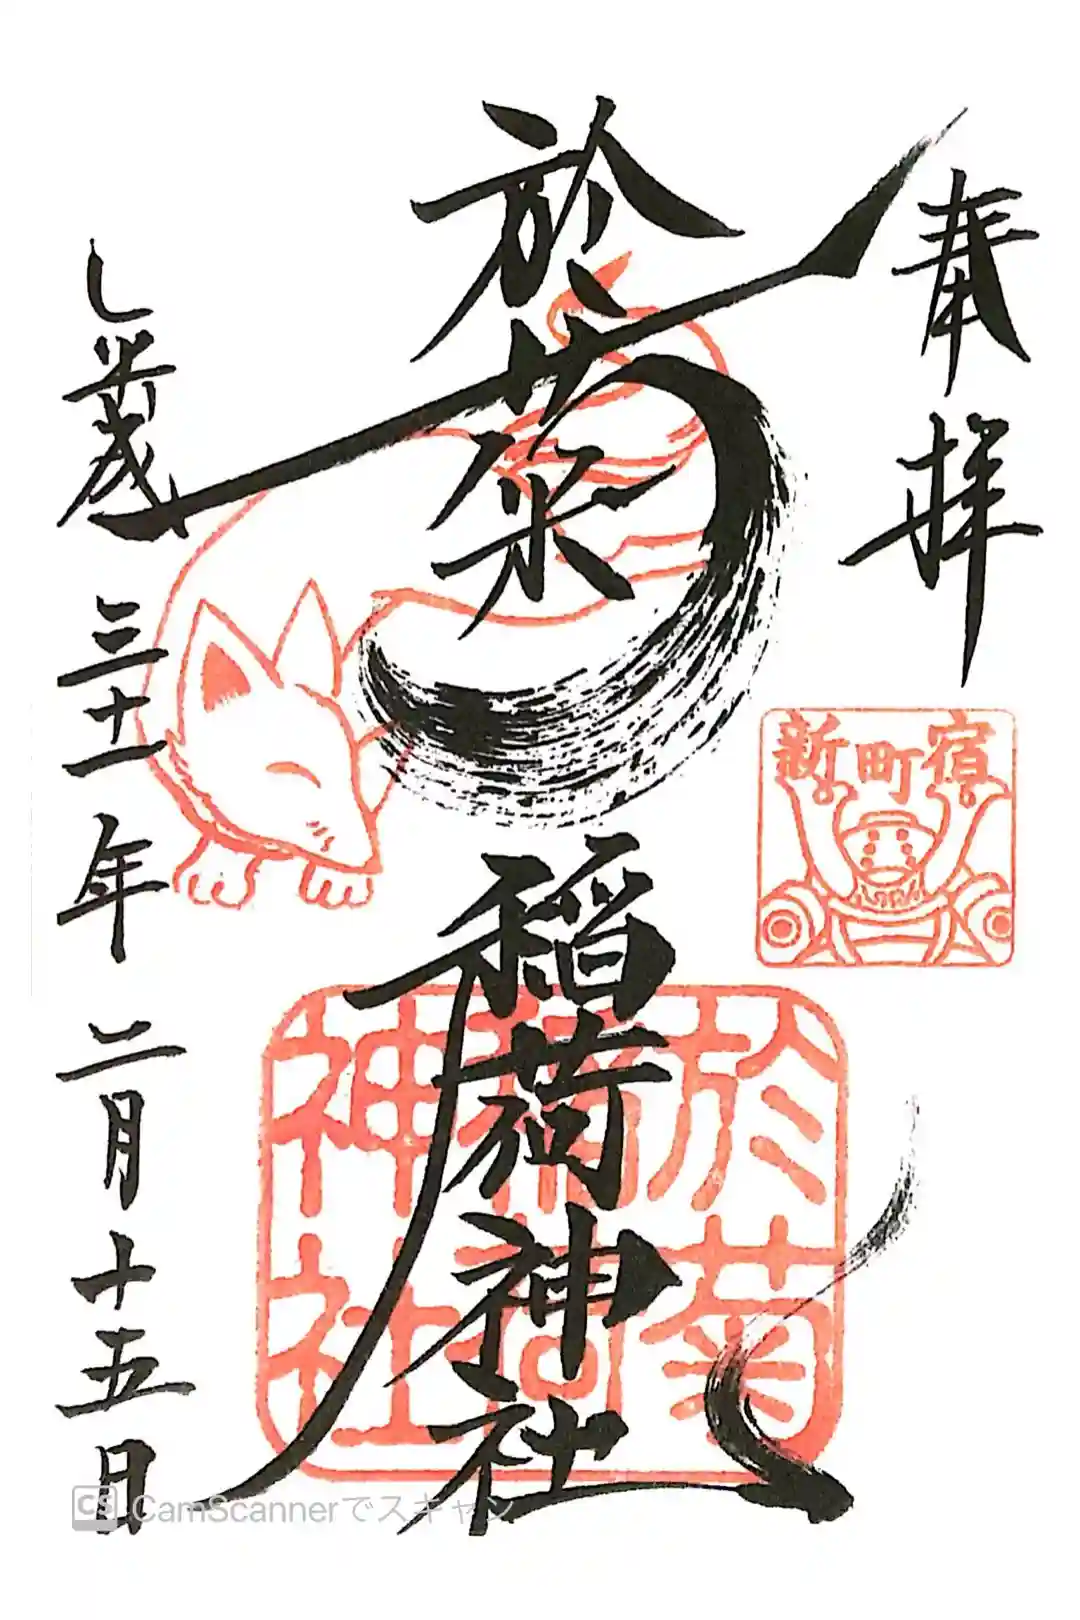 奉拝
新町宿
於菊稲荷神社
於菊
稲荷
神社
平成三十一年二月十五日
CS CamScannerでスキャン